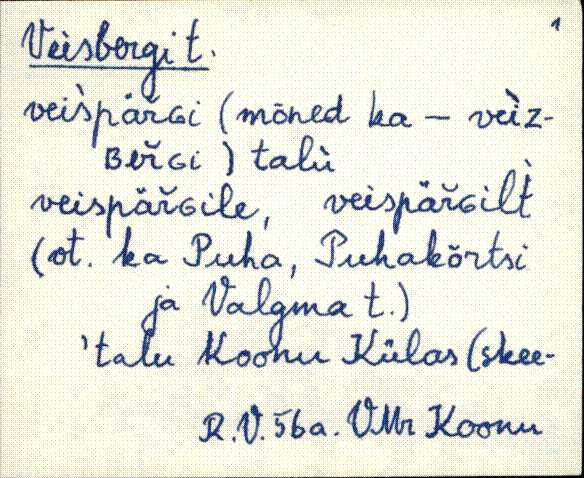 1
Veisbergi t.
veìspäřɢi (mõned ka — veìz-
ʙeřɢi) talù
veispäřɢile, veispäřɢilt̀
(ot. ka Puha, Puhakõrtsi
ja Valgma t.)
'talu Koonu Külas (skee-
R.V. 56 a. VMr Koonu